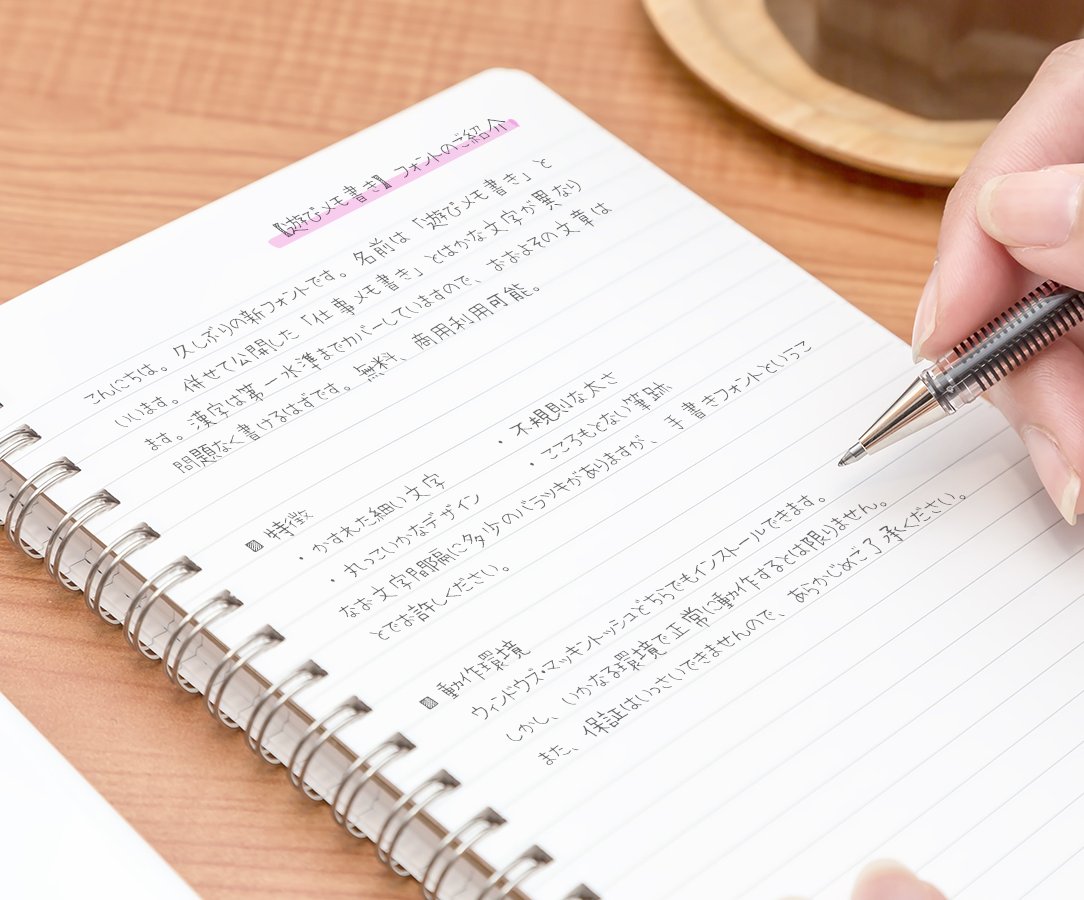 【遊びメモ書き】フォントのご紹介
こんにちは。久しぶりの新フォントです。名前は「遊びメモ書き」と
いいます。併せて公開した「仕事メモ書き」とはかな文字が異なり
ます。漢字は第一水準までカバーしていますので、おおよその文章は
問題なく書けるはずです。無料、商用利用可能。
■特徴
・かすれた細い文字 ・不規則な太さ
・丸っていかなデザイン ・こころもとない筆跡
なお文字間隔に多少のバラツキがありますが、手書きフォントというこ
とでお許しください。
■動作環境
ウィンドウズ・マッキントッシュどちらでもインストールできます。
しかし、いかなる環境で正常に動作するとは限りません。
また、保証はいっさいできませんので、あらかじめご了承ください。